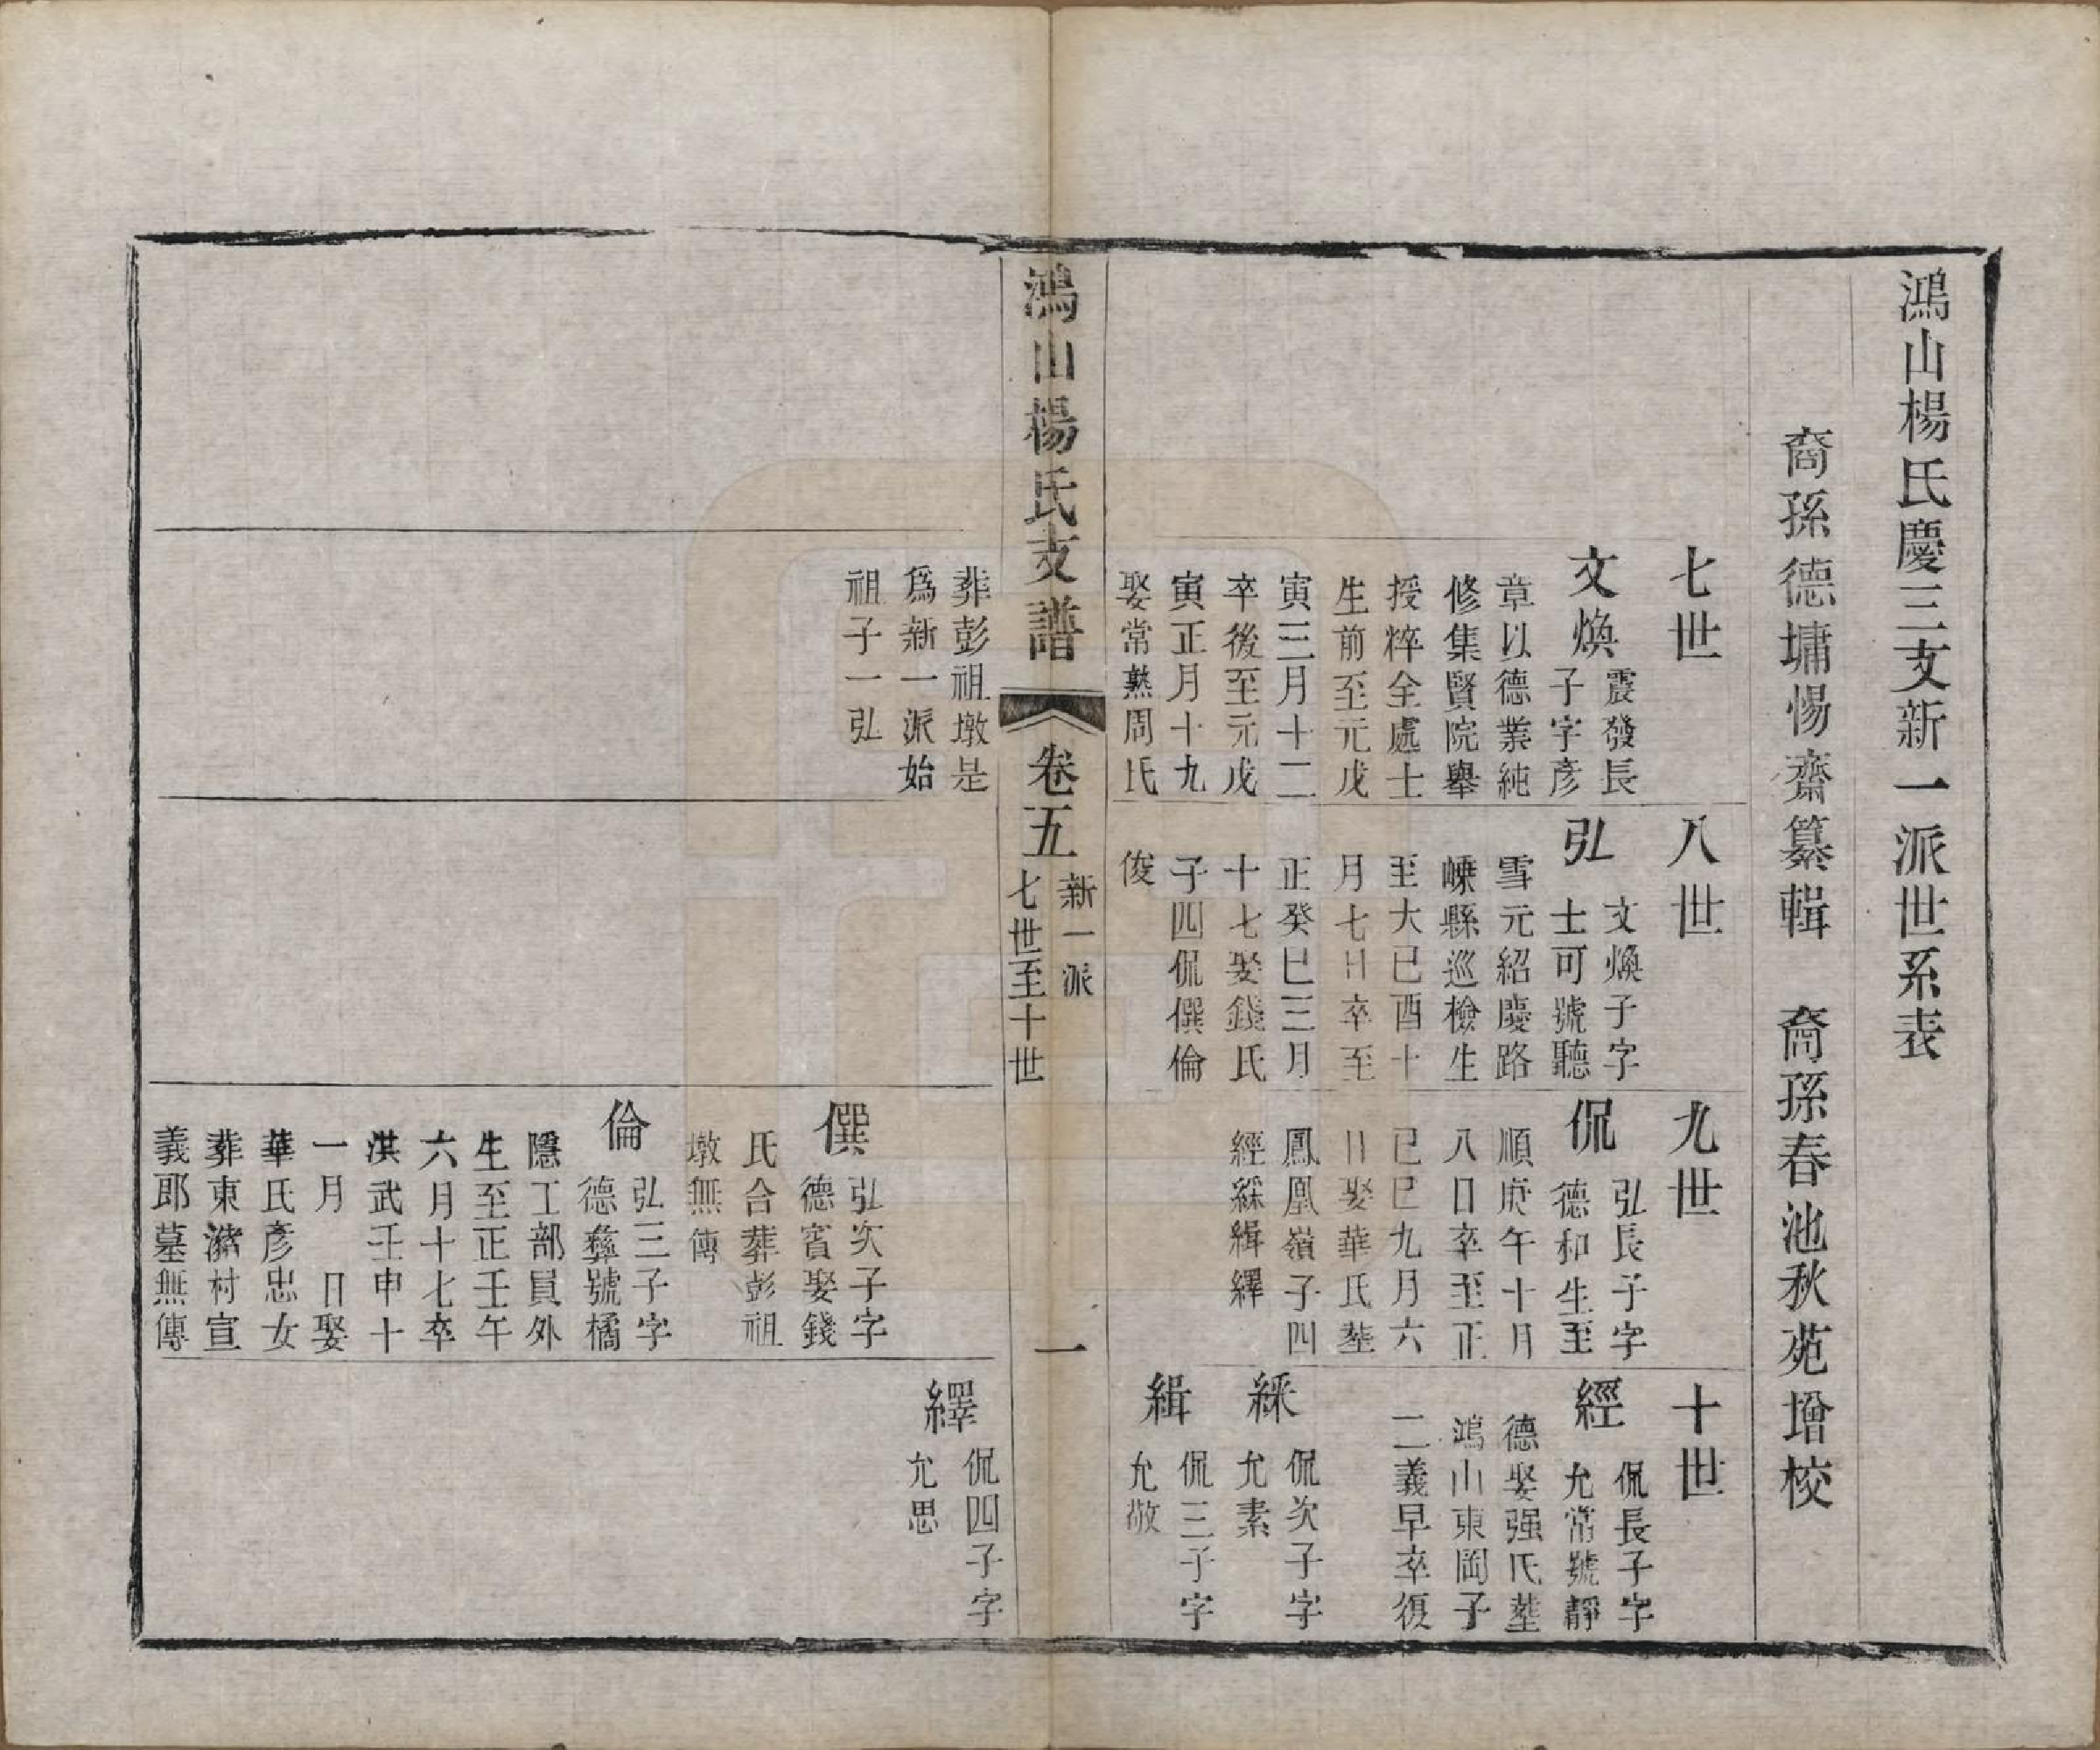 鴻山楊氏慶三支新一派世系表
裔孫德墉惕齋纂輯　裔孫春池秋苑增校
七世
文煥
震發長
子字彥
章以德業純
修集賢院舉
授粹全處士
生前至元戊
寅三月十二
卒後至元戊
寅正月十九
娶常熟周氏
八世
弘
文煥子字
士可號聽
雪元紹慶路
嵊縣巡檢生
至大己酉十
月七日卒至
正癸巳三月
十七娶錢氏
子四侃僎倫
俊
九世
侃
弘長子字
德和生至
順庚午十月
八日卒至正
己巳九月六
日娶華氏塟
鳳凰嶺子四
經綵緝繹
十世
經
侃長子字
允常號靜
德娶强氏塟
鴻山東岡子
二義早卒復
綵
侃次子字
允素
緝
侃三子字
允敬
鴻山楊氏支譜
卷五
新一派
七世至十世
一
葬彭祖墩是
爲新一派始
祖子一弘
僎
弘次子字
德賓娶錢
氏合葬彭祖
墩無傳
倫
弘三子字
德彝號橘
隱工部員外
生至正壬午
六月十七卒
洪武壬申十
一月　日娶
華氏彥忠女
葬東㵾村宣
義郎墓無傳
繹
侃四子字
允思